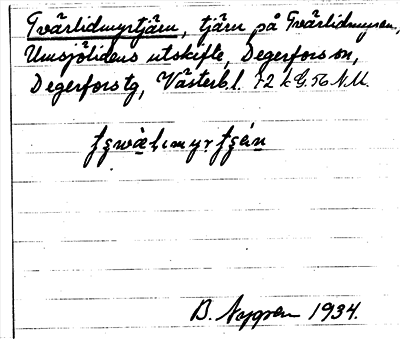 Tvärlidmyrtjärn, tjärn på Tvärlidmyran,
Umsjölidens utskifte, Degerfors sn,
Degerfors tg, Västerb. l. 72 k G. 56 N.U.
B. Nygren 1934.